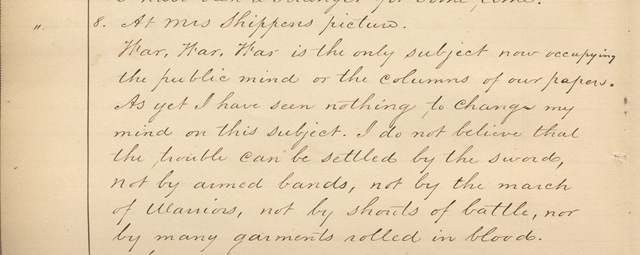 I have been a stranger for some time.
". 8. At Mrs Shippens picture.
War, War, War is the only subject now occupying
the public mind or the columns of our papers.
As yet I have seen nothing to change my
mind on this subject. I do not believe that
the trouble can be settled by the sword,
not by armed bands, not by the march
of Warriors, not by shouts of battle, nor
by many garments rolled in blood.